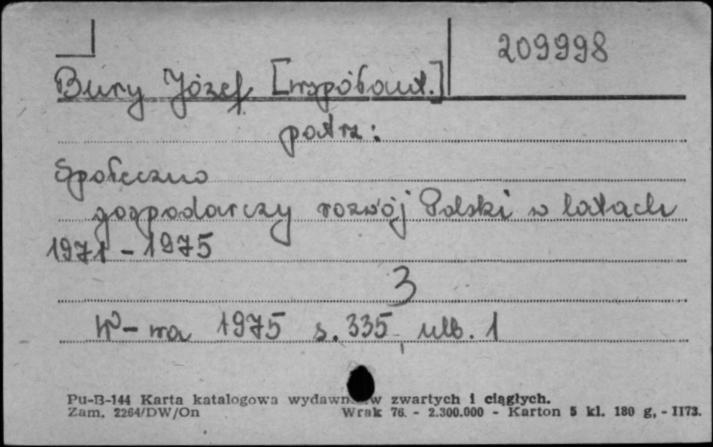 209998
Bury Józef [współaut.]
patrz:
Społeczno
gospodarczy rozwój Polski w latach
1971 - 1975
3
W-wa 1975 s. 335, nlb. 1
Pu-B-144 Karta katalogowa wydawn w zwartych i ciągłych.
Zam. 2264/DW/On Wrak 76. - 2.300.000 - Karton 5 kl. 180 g, - 1173.